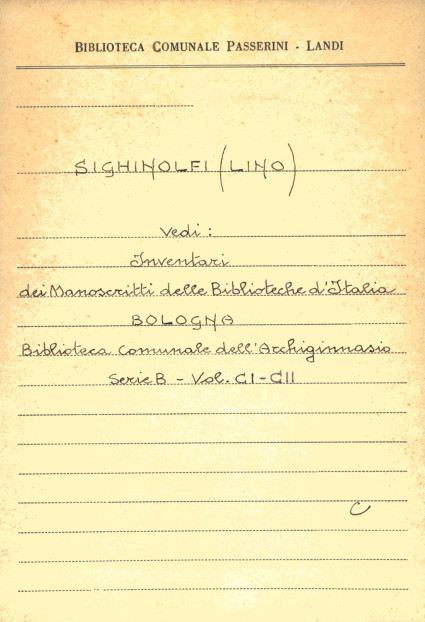 BIBLIOTECA COMUNALE PASSERINI - LANDI
SIGHINOLFI (LINO)
Vedi:
Inventari
dei Manoscritti delle Biblioteche d'Italia
BOLOGNA
Biblioteca Comunale dell'Archiginnasio
Serie B - Vol. CI-CII
C